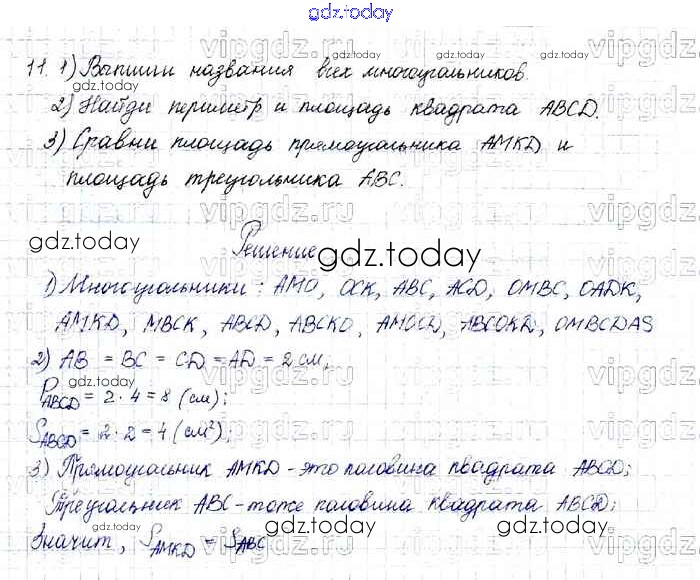 gdz.today
11. 1) Выпиши названия всех многоугольников.
2) Найди периметр и площадь квадрата ABCD.
3) Сравни площадь прямоугольника AMKD и
площадь треугольника ABC.
Решение
1) Многоугольники: AMO, OCK, ABC, ACD, OMBC, OADK,
AMKD, MBCK, ABCD, ABCKO, AMOCD, ABCOKD, OMBCDAS
2) AB = BC = CD = AD = 2 см,
P ABCD = 2 · 4 = 8 (см);
S ABCD = 2 · 2 = 4 (см²);
3) Прямоугольник AMKD - это половина квадрата ABCD;
Треугольник ABC - тоже половина квадрата ABCD;
Значит, S AMKD = S ABC